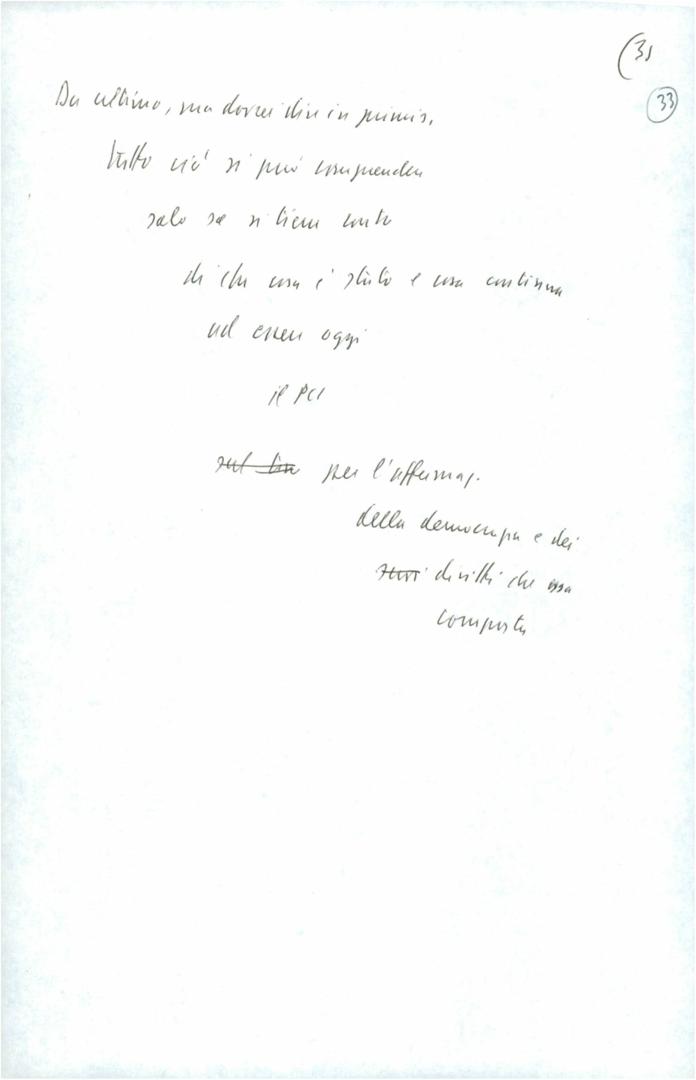 (31
33
Da ultimo, ma dovrei dire in primis,
tutto ciò si può comprendere
solo se si tiene conto
di che cosa è stato e cosa continua
ad essere oggi
il PCI
sul per l'affermaz.
della democrazia e dei
diritti che essa
comporta